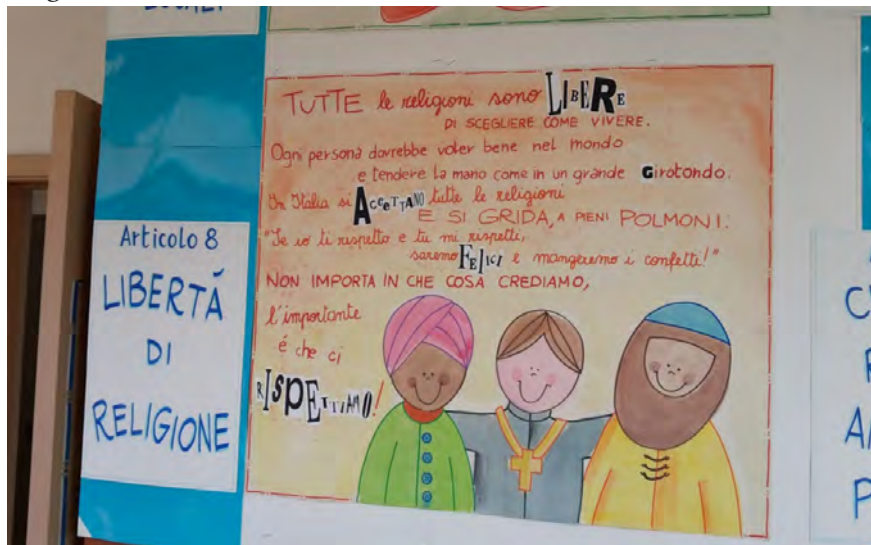 Articolo 8
LIBERTÁ
DI
RELIGIONE
TUTTE le religioni sono LIBERE
DI SCEGLIERE COME VIVERE.
Ogni persona dovrebbe voler bene nel mondo
e tendere la mano come in un grande Girotondo.
In Italia si ACCeTTANO tutte le religioni
E SI GRIDA, A PIENI POLMONI:
"Se io ti rispetto e tu mi rispetti,
saremo FELICI e mangeremo i confetti!"
NON IMPORTA IN CHE COSA CREDIAMO,
l'importante
é che ci
RISPETTIAMO!